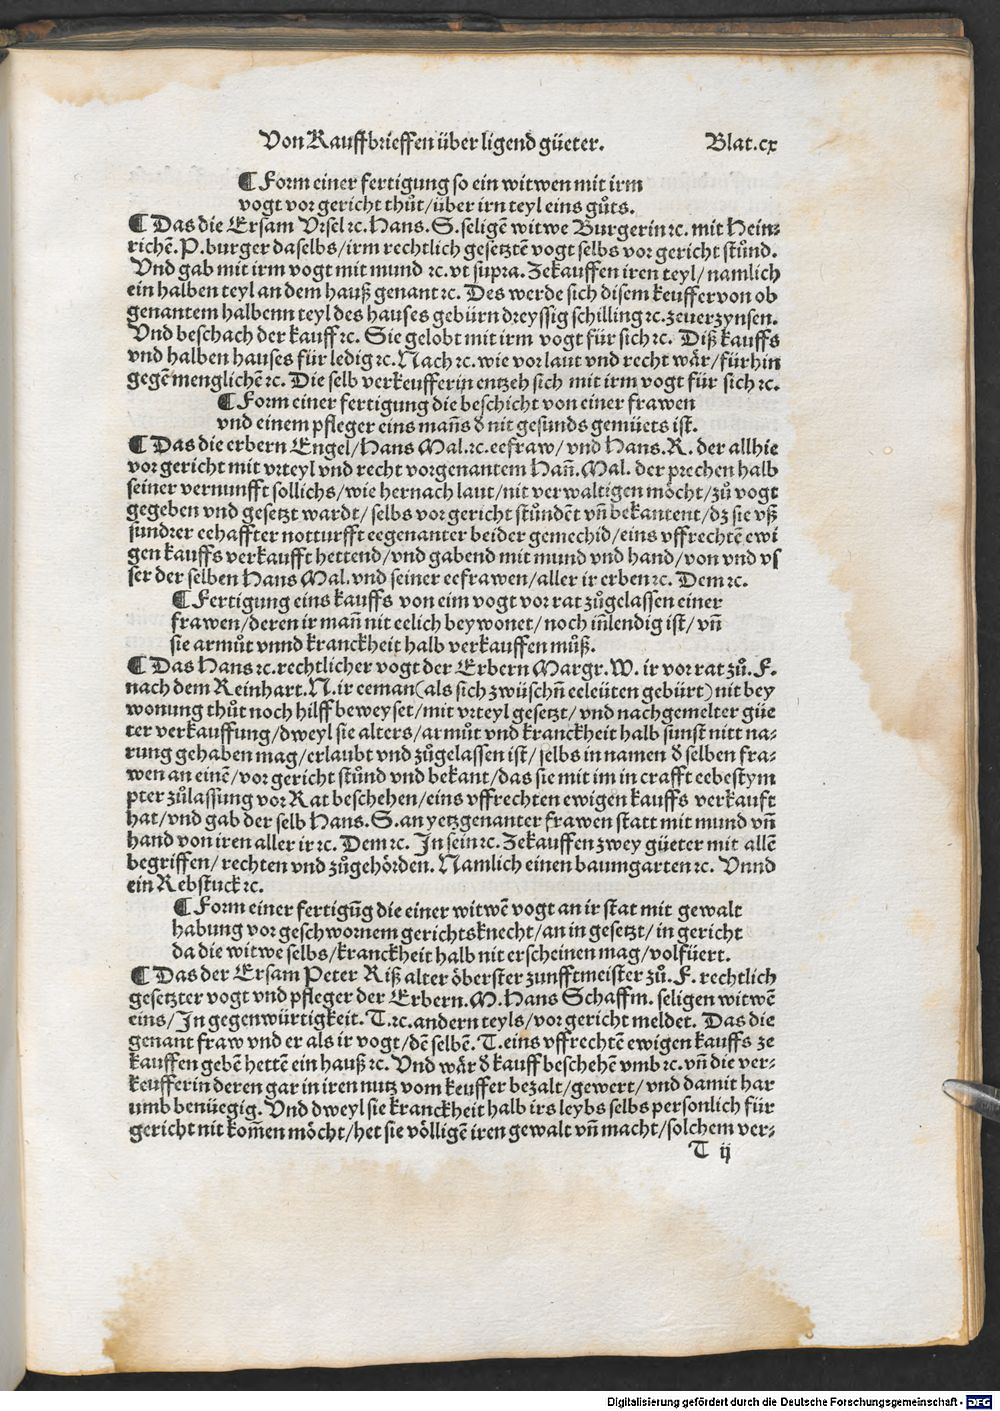 Von Kauffbrieffen über ligend güeter. Blat.cx
¶ Form einer fertigung so ein witwen mit irm
vogt vor gericht thůt/über irn teyl eins gůts.
¶ Das die Ersam Vrsel ⁊c. Hans. S. seligẽ witwe Burgerin ⁊c. mit Hein⸗
richẽ. P. burger daselbs/irm rechtlich gesetztẽ vogt selbs vor gericht stůnd.
Vnd gab mit irm vogt mit mund ⁊c. vt supra. Zekauffen iren teyl/namlich
ein halben teyl an dem hauß genant ⁊c. Des werde sich disem keuffer von ob
genantem halbenn teyl des hauses gebürn dreyssig schilling ⁊c. zeuerzynsen.
Vnd beschach der kauff ⁊c. Sie gelobt mit irm vogt für sich ⁊c. Diß kauffs
vnd halben hauses für ledig ⁊c. Nach ⁊c. wie vor laut vnd recht wår/fürhin
gegẽ menglichẽ ⁊c. Die selb verkeufferin entzeh sich mit irm vogt für sich ⁊c.
¶ Form einer fertigung die beschicht von einer frawen
vnd einem pfleger eins mañs ď nit gesunds gemüets ist.
¶ Das die erbern Engel/Hans Mal. ⁊c. eefraw/vnd Hans. R. der allhie
vor gericht mit vrteyl vnd recht vorgenantem Hañ. Mal. der prechen halb
seiner vernunfft sollichs/wie hernach laut/nit verwaltigen möcht/zů vogt
gegeben vnd gesetzt wardt/selbs vor gericht stůndẽt vñ bekantent/dz sie vß
sundrer eehaffter notturfft eegenanter beider gemechid/eins vffrechtẽ ewi
gen kauffs verkaufft hettend/vnd gabend mit mund vnd hand/von vnd vs
ser der selben Hans Mal. vnd seiner eefrawen/aller ir erben ⁊c. Dem ⁊c.
¶ Fertigung eins kauffs von eim vogt vor rat zůgelassen einer
frawen/deren ir mañ nit eelich beywonet/noch iñlendig ist/vñ
sie armůt vnnd kranckheit halb verkauffen můß.
¶ Das Hans ⁊c. rechtlicher vogt der Erbern Margr. W. ir vor rat zů. F.
nach dem Reinhart. N. ir eeman (als sich zwüschñ eeleüten gebürt) nit bey
wonung thůt noch hilff beweyset/mit vrteyl gesetzt/vnd nachgemelter güe
ter verkauffung/dweyl sie alters/armůt vnd kranckheit halb sunst nitt na⸗
rung gehaben mag/erlaubt vnd zůgelassen ist/selbs in namen ď selben fra⸗
wen an einẽ/vor gericht stůnd vnd bekant/das sie mit im in crafft eebestym
pter zůlassung vor Rat beschehen/eins vffrechten ewigen kauffs verkauft
hat/vnd gab der selb Hans. S. an yetzgenanter frawen statt mit mund vñ
hand von iren aller ir ⁊c. Dem ⁊c. In sein ⁊c. Zekauffen zwey güeter mit allẽ
begriffen/rechten vnd zůgehörden. Namlich einen baumgarten ⁊c. Vnnd
ein Rebstuck ⁊c.
¶ Form einer fertigũg die einer witwẽ vogt an ir stat mit gewalt
habung vor geschwornem gerichtsknecht/an in gesetzt/in gericht
da die witwe selbs/kranckheit halb nit erscheinen mag/volfüert.
¶ Das der Ersam Peter Riß alter öberster zunfftmeister zů. F. rechtlich
gesetzter vogt vnd pfleger der Erbern. M. Hans Schaffm. seligen witwẽ
eins/In gegenwürtigkeit. T. ⁊c. andern teyls/vor gericht meldet. Das die
genant fraw vnd er als ir vogt/dẽ selbẽ. T. eins vffrechtẽ ewigen kauffs ze
kauffen gebẽ hettẽ ein hauß ⁊c. Vnd wår ď kauff beschehẽ vmb ⁊c. vñ die ver⸗
keufferin deren gar in iren nutz vom keuffer bezalt/gewert/vnd damit har
umb benüegig. Vnd dweyl sie kranckheit halb irs leybs selbs personlich für
gericht nit kom̃en möcht/het sie völligẽ iren gewalt vñ macht/solchem ver⸗
T ij
Digitalisierung gefördert durch die Deutsche Forschungsgemeinschaft - DFG